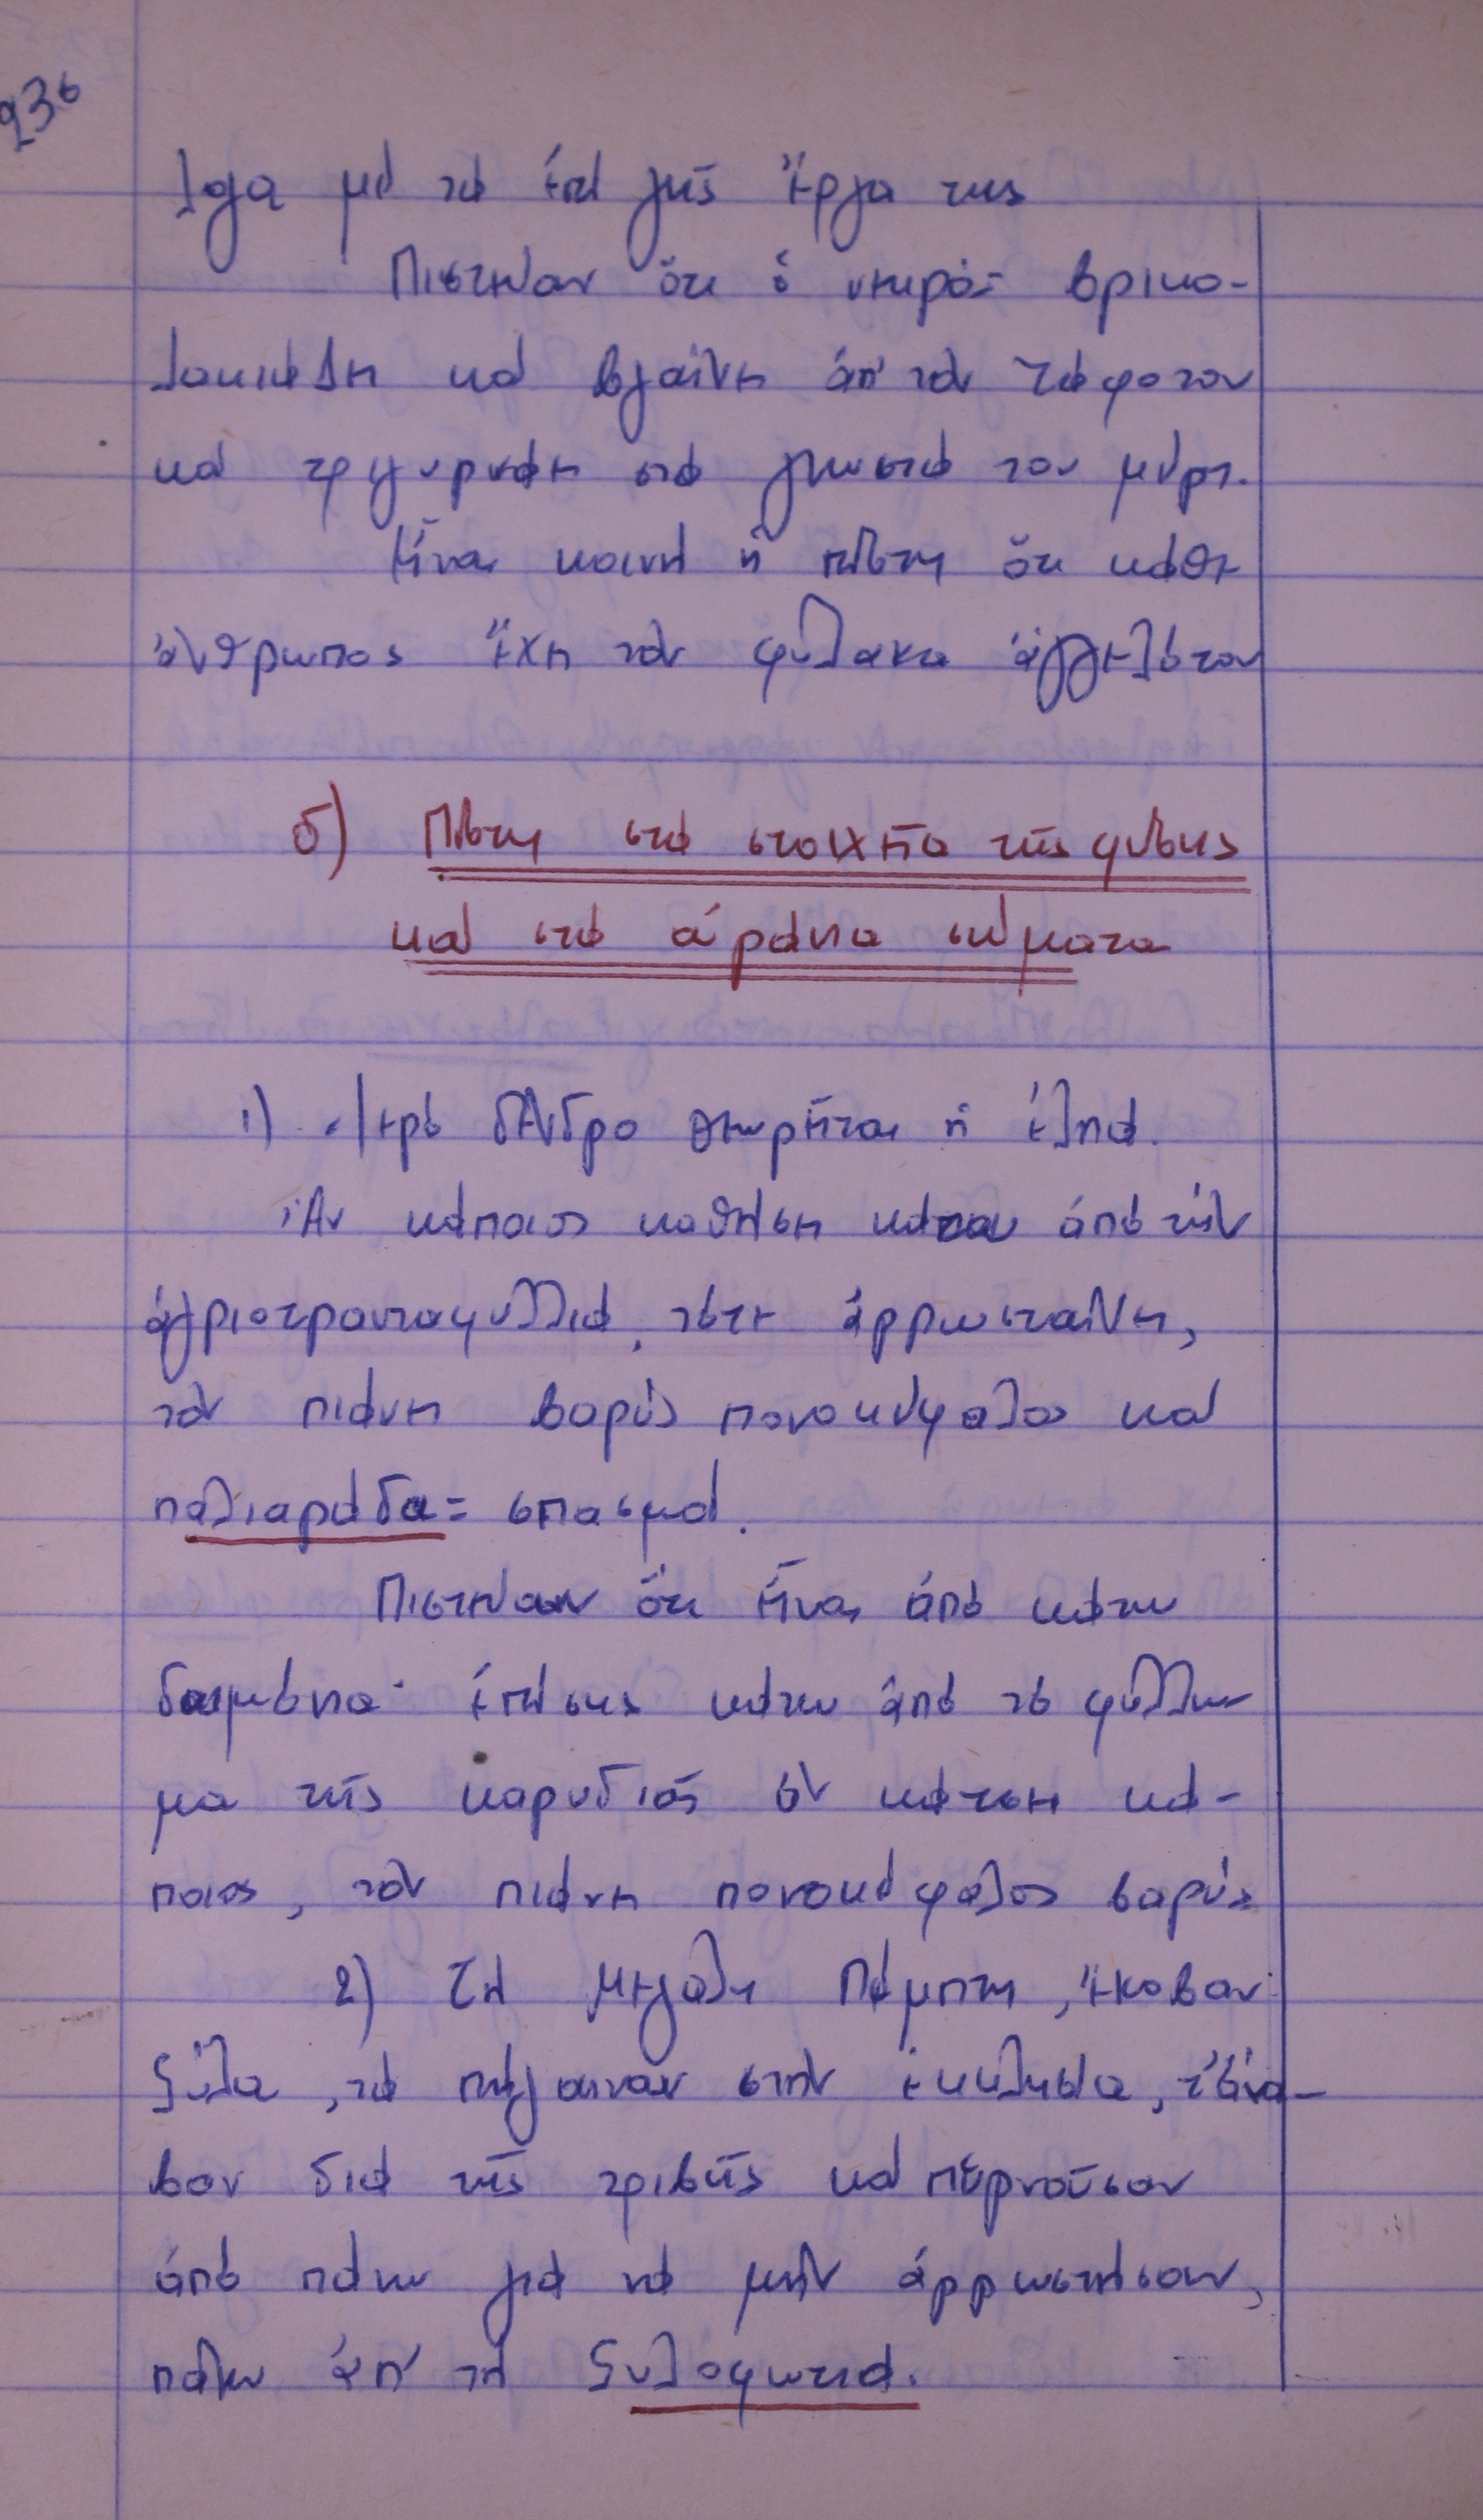 236
λογα μέ τά ἐπί γῆς ἔργα της
Πιστεύαν ὅτι ὁ νεκρός βρικο-
λακιάζει καί βγαίνει ἀπ' τόν τάφο του
καί τριγυρνάει στά γνωστά του μέρη.
Εἶναι κοινή ἡ πίστη ὅτι κάθε
ἄνθρωπος ἔχει τόν φύλακα ἄγγελό του
δ) Πίστη στά στοιχεῖα τῆς φύσης
καί στά οὐράνια σώματα
1) Ἱερό δένδρο θεωρεῖται ἡ ἐληά.
Ἄν κάποιος καθήσει κάτου ἀπό τήν
ἀγριοτρανταφυλλιά, τότε ἀρρωσταίνει,
τόν πιάνει βαρύς πονοκέφαλος καί
παλιαράδα = σπασμοί.
Πιστεύουν ὅτι εἶναι ἀπό κάτω
δαιμόνια· ἐπίσης κάτω ἀπό τό φύλλω
μα τῆς καρυδιᾶς ἄν κάτσει κά-
ποιος, τόν πιάνει πονοκέφαλος βαρύς
2) Τή Μεγάλη Πέμπτη, ἔκοβαν
ξύλα, τά πήγαιναν στήν ἐκκλησία, τ' ἄνα-
βαν διά τῆς τριβῆς καί περνοῦσαν
ἀπό πάνω γιά νά μήν ἀρρωστήσουν,
πάνω ἀπ' τή ξυλοφωτιά.